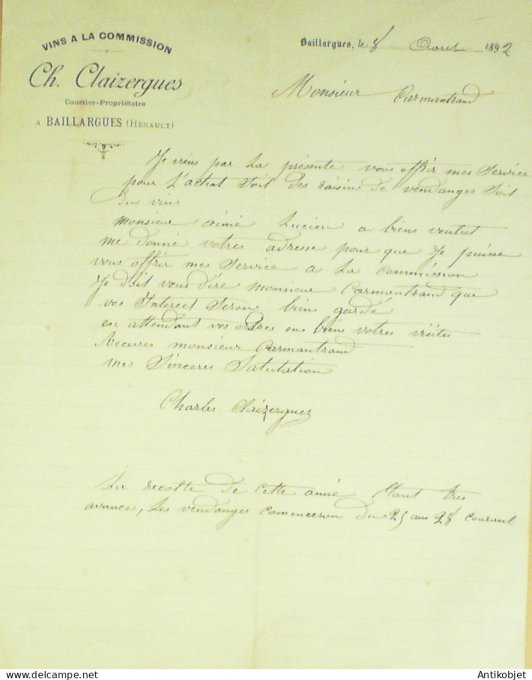 VINS A LA COMMISSION
Ch. Claizergues
Courtier-Propriétaire
A BAILLARGUES (HÉRAULT)
Baillargues, le 8 Aout 1892
Monsieur Carmantrand
Je viens par la présente vous offrir mes service
pour l'achat soit des raisin de vendanges soit
du vins
monsieur Lucien a biens voulut
me donné votres adresse pour que je puisse
vous offrir mes service a la commission
Je doit vous dire monsieur Carmantrand que
vos Interet seron biens gardé
en attendant vos ordres ou biens votres visites
Recevez monsieur Carmantrand
mes Sincères Salutation
Charles Claizergues
La recolte de cette anné etant tres
avance, les vendanges comenceron du 25 au 28 courant
Antikobjet.com